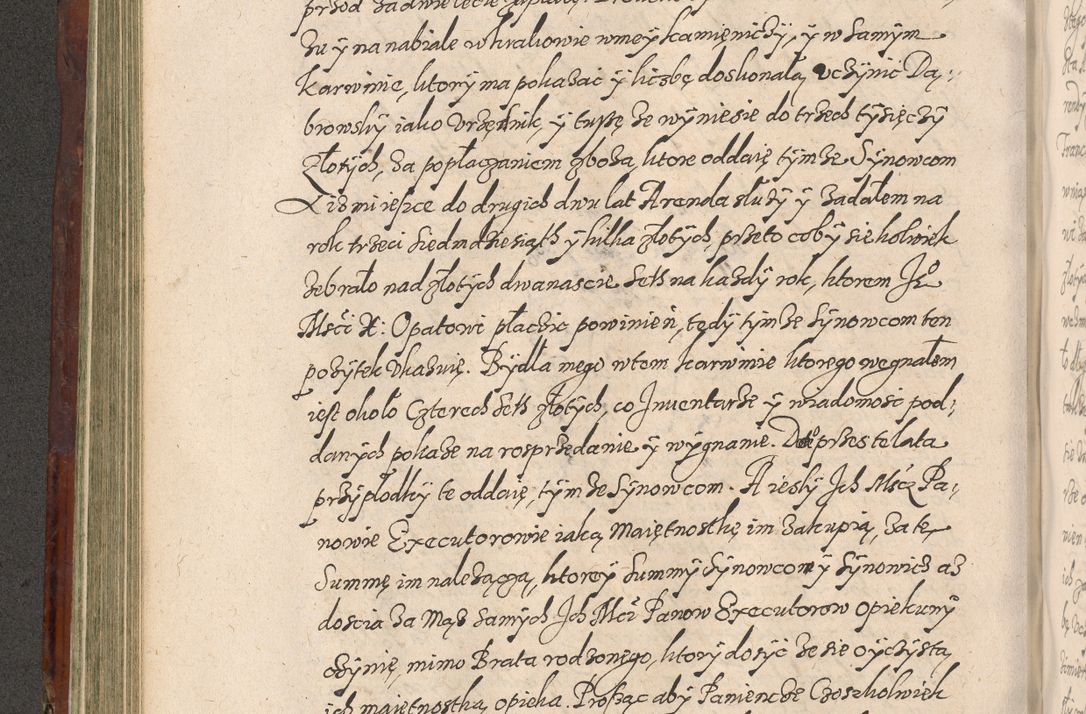 zu ÿ na nabiale w Krakowie w meÿ kamięniczÿ, ÿ w samÿm
Karwinie, ktorÿ ma pokazać ÿ liczbę doskonałą uczÿnic Dą:
browskÿ iako Urzędnik, ÿ tuszę ze wÿniesie do trzech tÿsięczÿ
Złotÿch, za popłaczaniem zboza, ktore oddaię tÿmze Sÿnowcom
Lismieisce do drugich dwu lat Arenda służÿ ÿ zadałem na
rok trzeci siedmdziesiąth ÿ kilka złotÿch, przeto cobÿ sie kolwiek
zebrało nad złotÿch dwanascie seth na kazdÿ rok, ktorem Je°
Msći X: Opatowi płaczic powinień, tędÿ tÿmze sÿnowcom ten
pozÿtek ukazuię. Bÿdła mego w tem Karwinie ktorego wegnałem
iest około Czterech seth złotÿch, co Inwentarze ÿ wiadomosc pod:
danÿch pokaze na rosprzedanie ÿ wÿgnanie. Do° przes te lata
przÿpłodkÿ te oddaię, tÿmze sÿnowcom. A ieslÿ Ich Mścz Pa:
nowie Executorowie iaką Maiętnostkę im zakupią, za tę
Summę im nalezącą, ktoreÿ summÿ sÿnowcom ÿ sÿnowich az
doscia za Mąz samÿch Ich Mći Panow Executorow opiekunÿ
czÿnię, mimo Brata rodzonęgo, ktorÿ dosÿć ze sie oÿczÿstą,
ich maiętnostką, opieka. Prosząc abÿ Paniencze Czoszkolwiek